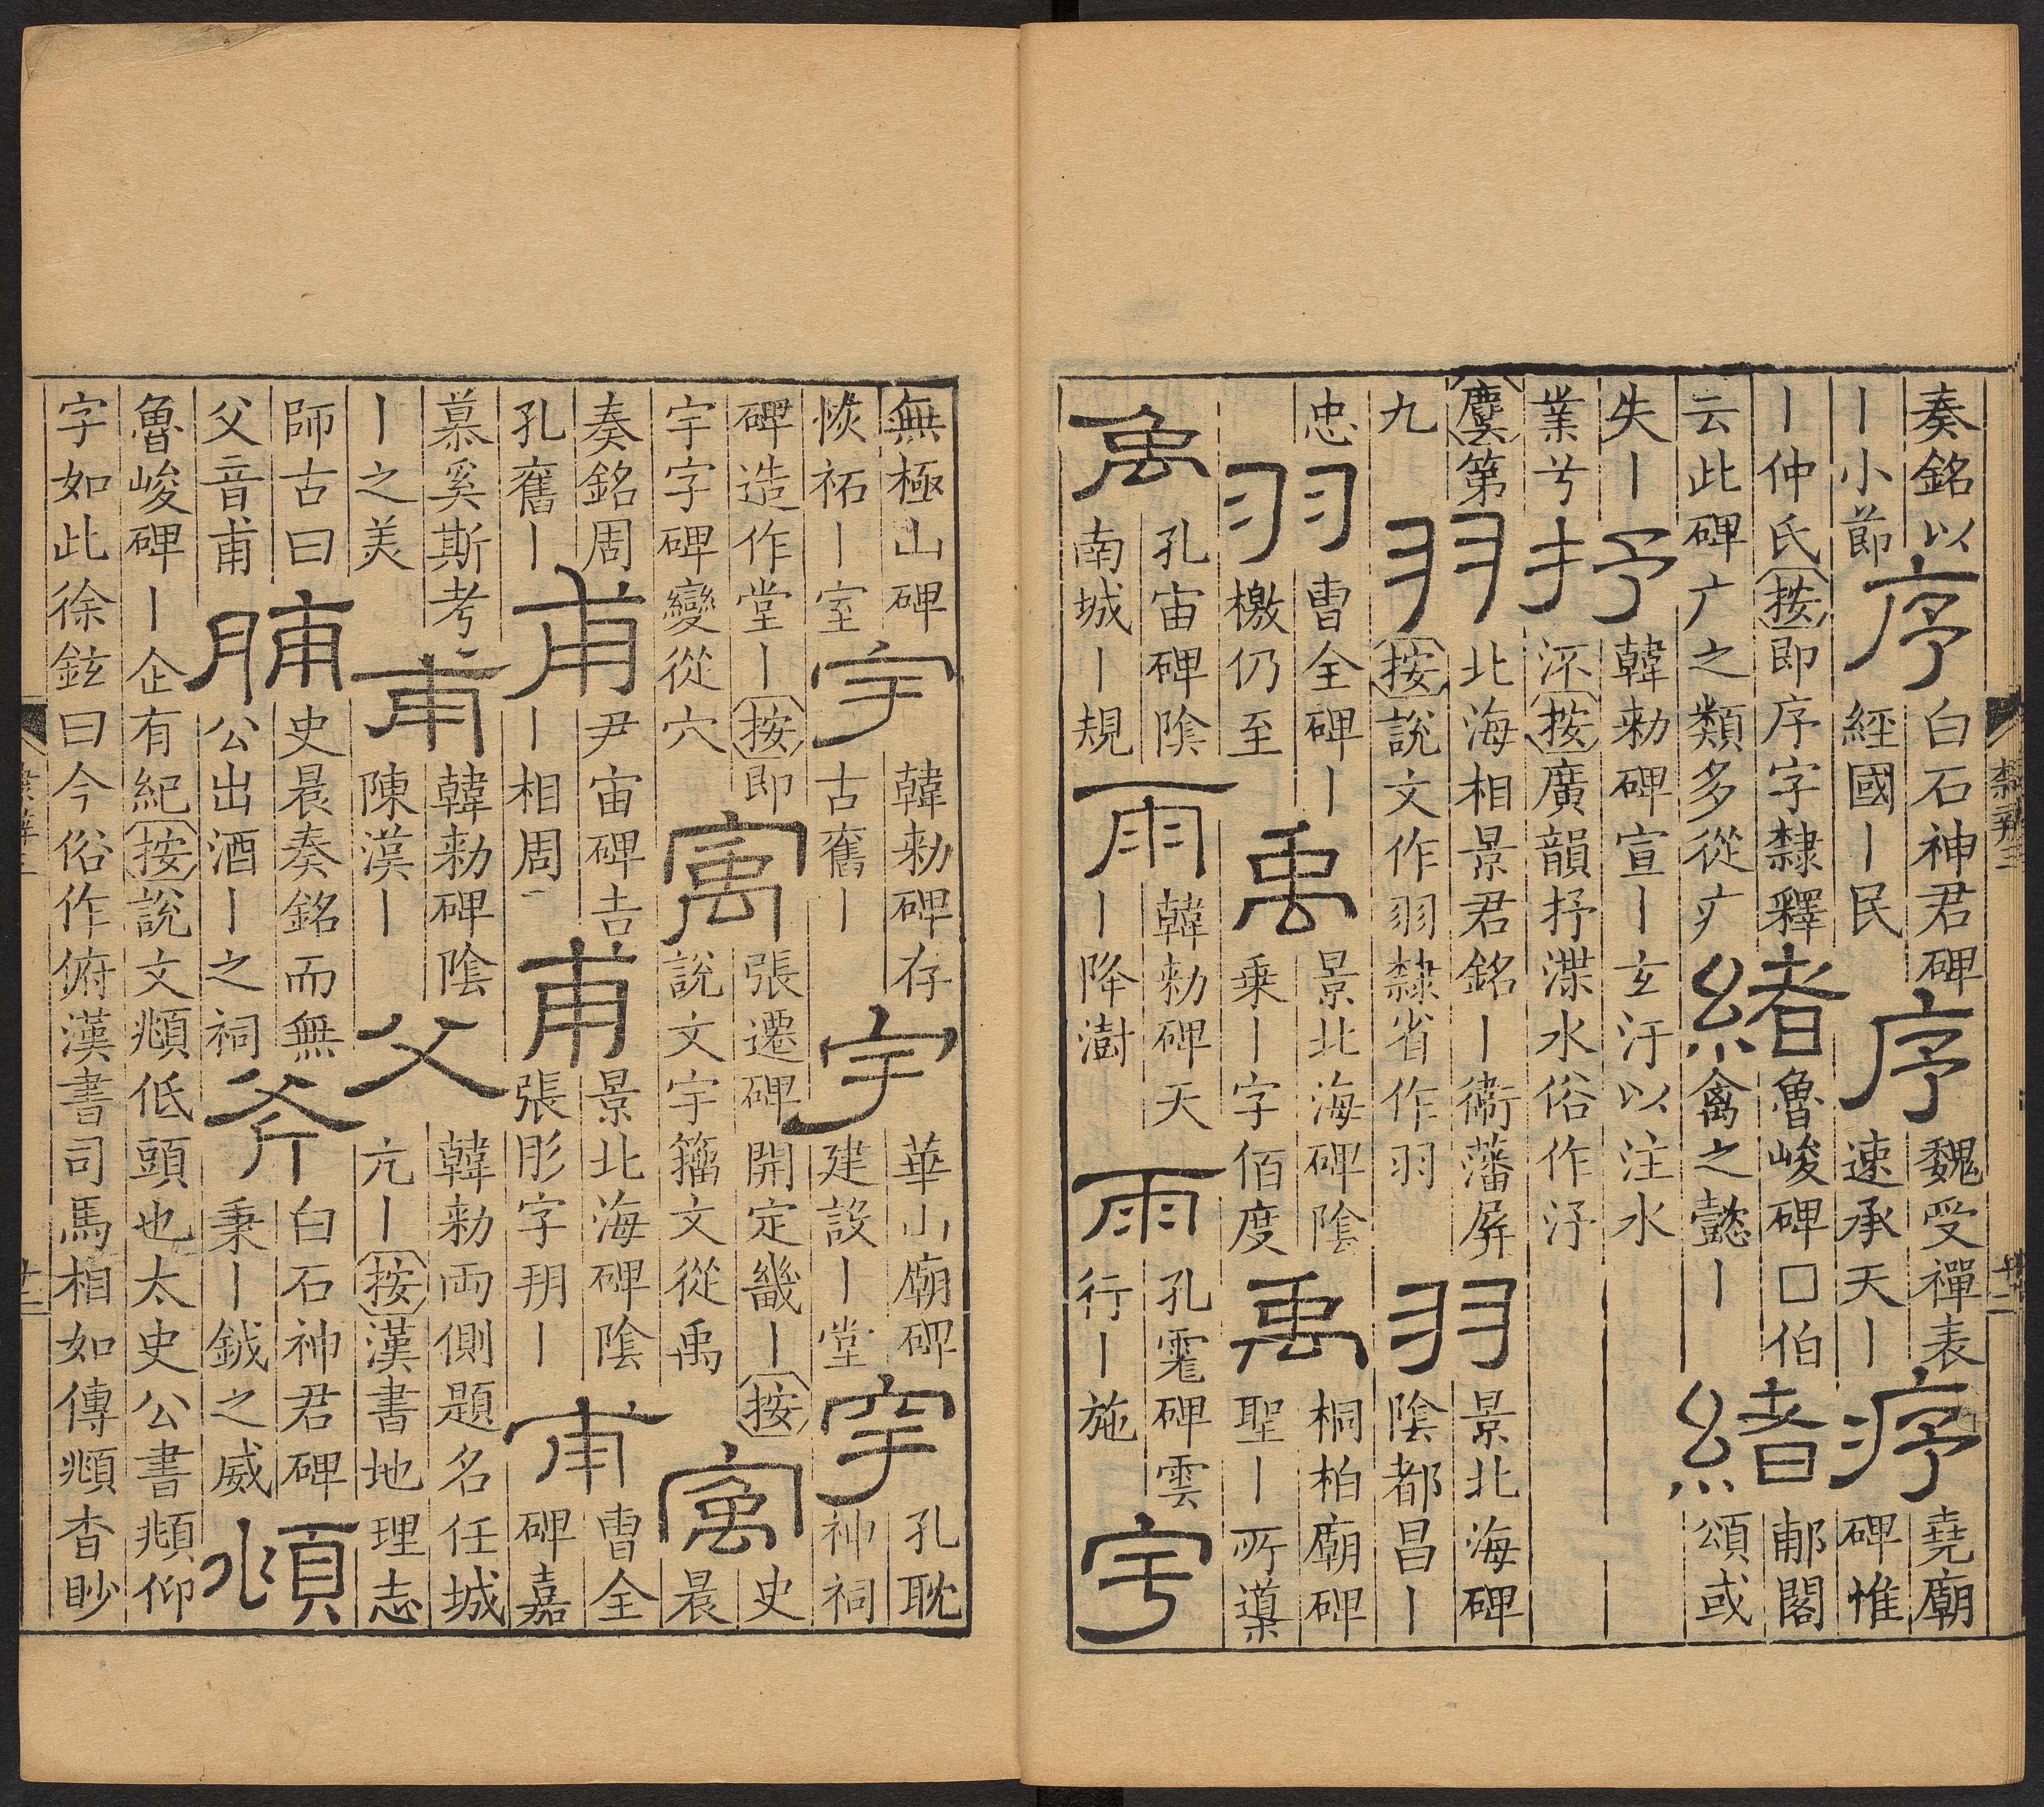 奏銘以
丨小節
序
白石神君碑
經國丨民
序
魏受禪表
速承天丨
㾕
堯廟
碑惟
丨仲氏按即序字隸釋
云此碑广之類多從疒
緒
魯峻碑□伯
禽之懿丨
緒
郙閣
頌或
失丨
業兮
抒
韓勑碑宣丨玄汙以注水
按廣韻抒渫水俗作汿
麌第
九
羽
北海相景君銘丨衞藩屏
按說文作羽隸省作羽
羽
景北海碑
陰都昌丨
忠
羽
曹全碑丨
檄仍至
禹
景北海碑陰
乗丨字佰度
禹
桐柏廟碑
聖丨所遵
禹
孔宙碑陰
南城丨規
雨
韓勑碑天
丨降澍
雨
孔䨱碑雲
行丨施
宇
隸辨三
廿二
無極山碑
恢祏丨室
宇
韓勑碑存
古舊丨
宇
華山廟碑
建設丨堂
穻
孔耽
神祠
碑造作堂丨按即
宇字碑變從穴
㝢
張遷碑開定畿丨按
說文宇籒文從禹
㝢
史
晨
奏銘周
孔舊丨
甫
尹宙碑吉
丨相周
甫
景北海碑陰
張彤字玥丨
甫
曹全
碑嘉
慕奚斯考
丨之美
甫
韓勑碑陰
陳漢丨
父
韓勑兩側題名任城
亢丨按漢書地理志
師古曰
父音甫
脯
史晨奏銘而無
公出酒丨之祠
斧
白石神君碑
秉丨鉞之威
頫
魯峻碑丨企有紀按說文頫低頭也太史公書頫仰
字如此徐鉉曰今俗作俯漢書司馬相如傳頫杳眇